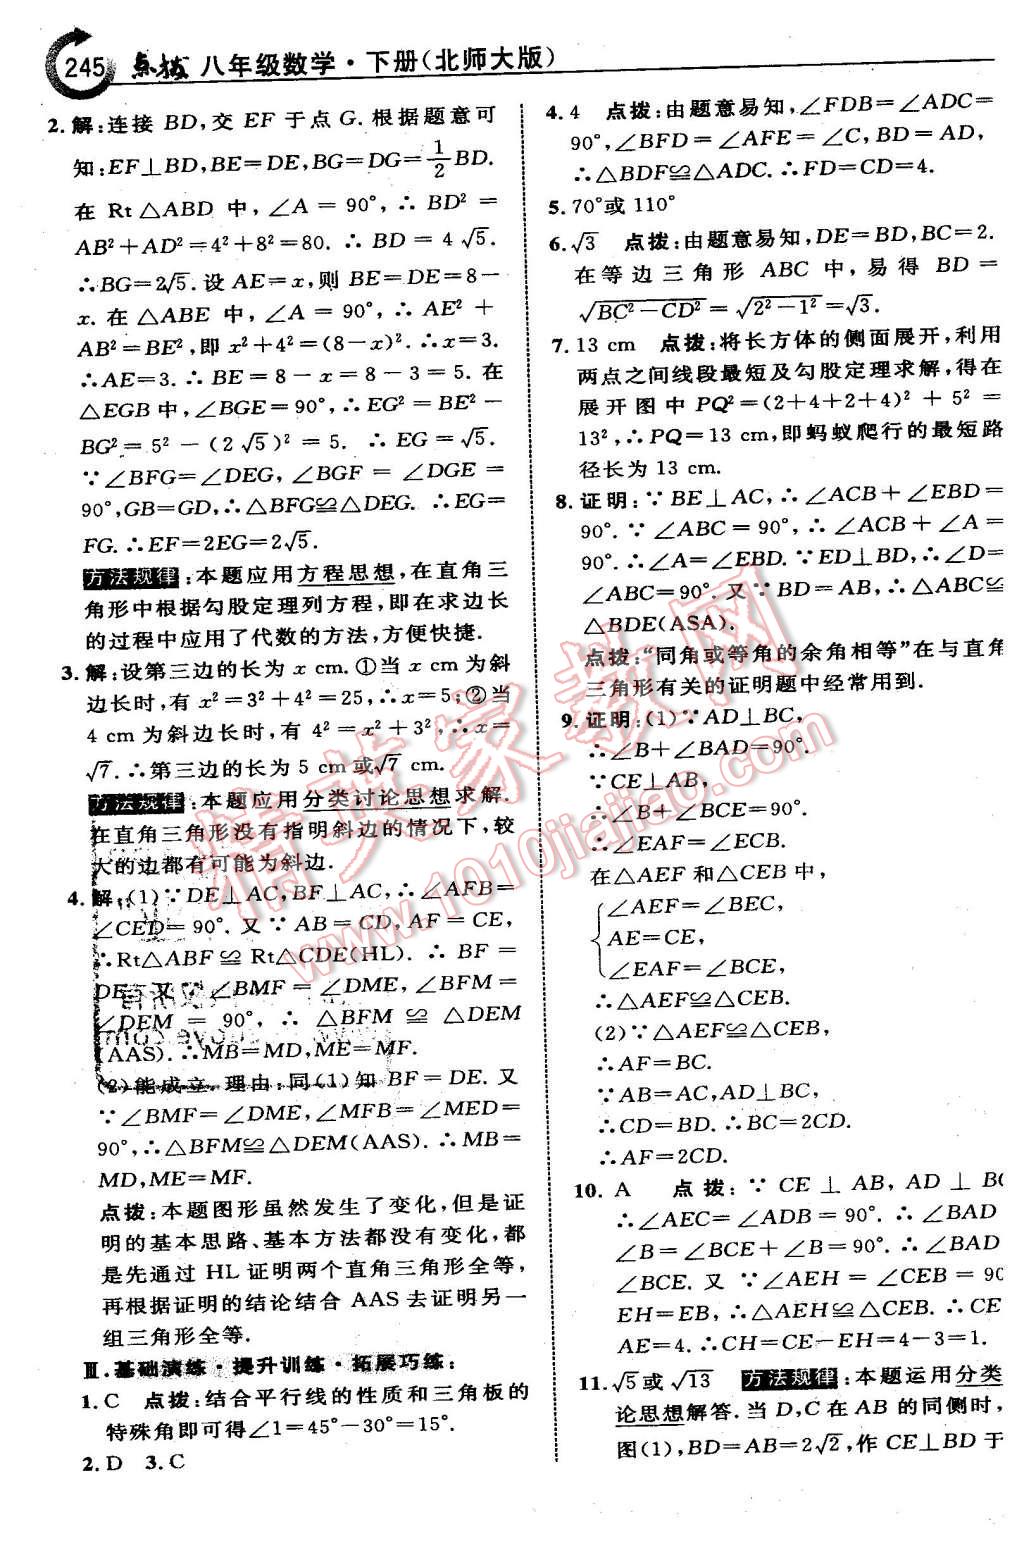 245 点拨 八年级数学·下册(北师大版)
2.解:连接 BD,交 EF 于点 G.根据题意可
知:EF⊥BD,BE=DE,BG=DG=1/2BD.
在 Rt△ABD 中,∠A=90°,∴BD²=
AB²+AD²=4²+8²=80.∴BD=4√5.
∴BG=2√5.设 AE=x,则 BE=DE=8-
x.在△ABE 中,∠A=90°,∴AE²+
AB²=BE²,即 x²+4²=(8-x)².∴x=3.
∴AE=3.∴BE=8-x=8-3=5.在
△EGB 中,∠BGE=90°,∴EG²=BE²-
BG²=5²-(2√5)²=5.∴EG=√5.
∵∠BFG=∠DEG,∠BGF=∠DGE=
90°,GB=GD,∴△BFG≌△DEG.∴EG=
FG.∴EF=2EG=2√5.
方法规律:本题应用方程思想,在直角三
角形中根据勾股定理列方程,即在求边长
的过程中应用了代数的方法,方便快捷.
3.解:设第三边的长为 x cm.①当 x cm 为斜
边长时,有 x²=3²+4²=25,∴x=5;②当
4 cm 为斜边长时,有 4²=x²+3²,∴x=
√7.∴第三边的长为 5 cm 或√7 cm.
方法规律:本题应用分类讨论思想求解.
在直角三角形没有指明斜边的情况下,较
大的边都有可能为斜边.
4.解:(1)∵DE⊥AC,BF⊥AC,∴∠AFB=
∠CED=90°.又∵AB=CD,AF=CE,
∴Rt△ABF≌Rt△CDE(HL).∴BF=
DE.又∵∠BMF=∠DME,∠BFM=
∠DEM=90°,∴△BFM≌△DEM
(AAS).∴MB=MD,ME=MF.
(2)能成立.理由:同(1)知 BF=DE.又
∵∠BMF=∠DME,∠MFB=∠MED=
90°,∴△BFM≌△DEM(AAS).∴MB=
MD,ME=MF.
点拨:本题图形虽然发生了变化,但是证
明的基本思路、基本方法都没有变化,都
是先通过 HL 证明两个直角三角形全等,
再根据证明的结论结合 AAS 去证明另一
组三角形全等.
Ⅲ.基础演练·提升训练·拓展巧练:
1.C 点拨:结合平行线的性质和三角板的
特殊角即可得∠1=45°-30°=15°.
2.D 3.C
4.4 点拨:由题意易知,∠FDB=∠ADC=
90°,∠BFD=∠AFE=∠C,BD=AD,
∴△BDF≌△ADC.∴FD=CD=4.
5.70°或 110°
6.√3 点拨:由题意易知,DE=BD,BC=2.
在等边三角形 ABC 中,易得 BD=
√(BC²-CD²)=√(2²-1²)=√3.
7.13 cm 点拨:将长方体的侧面展开,利用
两点之间线段最短及勾股定理求解,得在
展开图中 PQ²=(2+4+2+4)²+5²=
13²,∴PQ=13 cm,即蚂蚁爬行的最短路
径长为 13 cm.
8.证明:∵BE⊥AC,∴∠ACB+∠EBD=
90°.∵∠ABC=90°,∴∠ACB+∠A=
90°.∴∠A=∠EBD.∵ED⊥BD,∴∠D=
∠ABC=90°.又∵BD=AB,∴△ABC≌
△BDE(ASA).
点拨:“同角或等角的余角相等”在与直角
三角形有关的证明题中经常用到.
9.证明:(1)∵AD⊥BC,
∴∠B+∠BAD=90°.
∵CE⊥AB,
∴∠B+∠BCE=90°.
∴∠EAF=∠ECB.
在△AEF 和△CEB 中,
{∠AEF=∠BEC,
AE=CE,
∠EAF=∠BCE,
∴△AEF≌△CEB.
(2)∵△AEF≌△CEB,
∴AF=BC.
∵AB=AC,AD⊥BC,
∴CD=BD.∴BC=2CD.
∴AF=2CD.
10.A 点拨:∵CE⊥AB,AD⊥BC
∴∠AEC=∠ADB=90°.∴∠BAD
∠B=∠BCE+∠B=90°.∴∠BAD
∠BCE.又∵∠AEH=∠CEB=90
EH=EB,∴△AEH≌△CEB.∴CE
AE=4.∴CH=CE-EH=4-3=1.
11.√5或√13 方法规律:本题运用分类
论思想解答.当 D,C 在 AB 的同侧时,
图(1),BD=AB=2√2,作 CE⊥BD 于
精英家教网
www.1010jiajiao.com